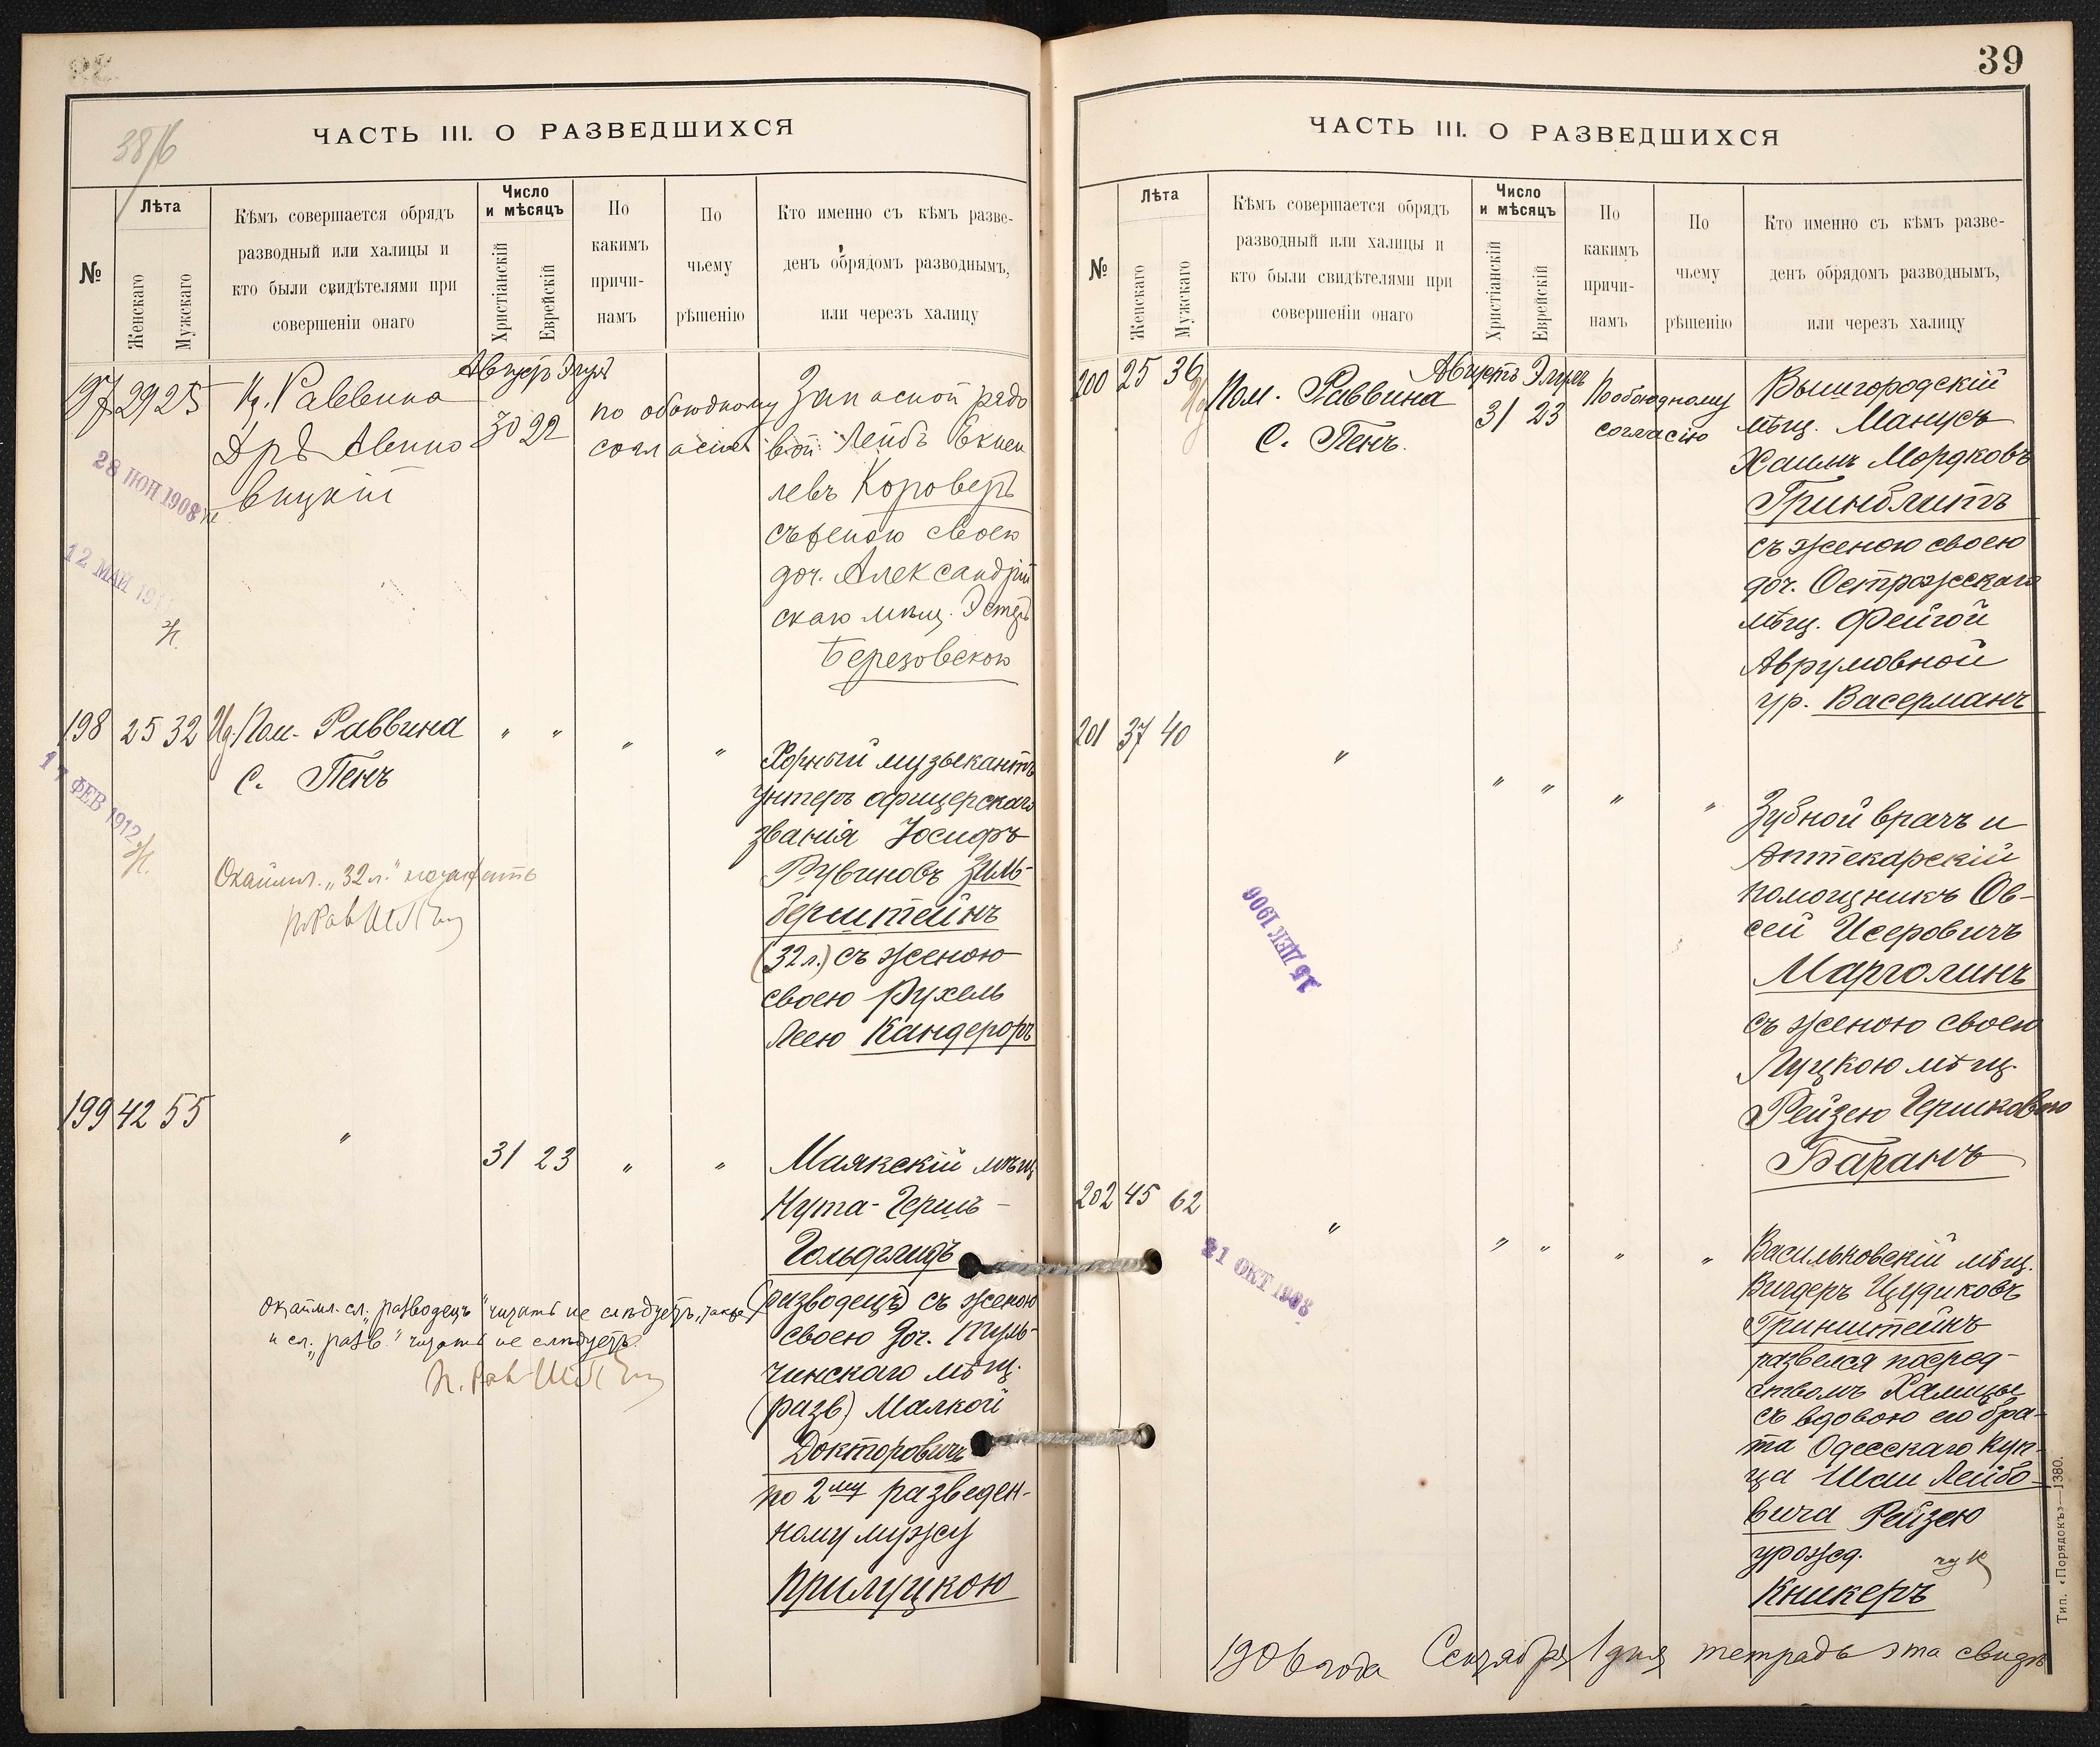 38/б
ЧАСТЬ III. О РАЗВЕДШИХСЯ
№
Лѣта
Женскаго
Мужскаго
Кѣмъ совершается обрядъ
разводный или халицы и
кто были свидѣтелями при
совершеніи онаго
Число
и мѣсяцъ
Христіанскій
Еврейскій
По
какимъ
причи-
намъ
По
чьему
рѣшенію
Кто именно съ кѣмъ разве-
денъ обрядомъ разводнымъ,
или черезъ халицу
197 29 25
Раввина
Дръ Авино
вицкій
Августъ Элулъ
30 22
по обоюдному
согласію
Запасной рядо
вой Лейбъ
левъ Короверъ
съ женою своею
доч. Александрій
скаго мѣщ. Эстеръ
Березовскою
28 ІЮН 1908
12 МАЙ
198 25 32
Пом. Раввина
С. Пенъ
" " " "
Хорный музыкантъ
унтеръ офицерскаго
званія Іосифъ
Рувиновъ Зиль-
берштейнъ
(32 л.) съ женою
своею Рухель
Леею Кандерофъ
17 ФЕВ 1912
Окаймл. „32 л."
199 42 55
"
31 23 " "
Маякскій мѣщ
Нута-Гершъ-
Гольдглидъ
(разводецъ) съ женою
своею доч. Туль-
чинскаго мѣщ.
(разв) Малкой
Докторовичъ
по 2му разведен-
ному мужу
Прилуцкою
Окаймл. сл. „разводецъ" читать не слѣдуетъ, также
и сл. „разв." читать не слѣдуетъ.
39
ЧАСТЬ III. О РАЗВЕДШИХСЯ
№
Лѣта
Женскаго
Мужскаго
Кѣмъ совершается обрядъ
разводный или халицы и
кто были свидѣтелями при
совершеніи онаго
Число
и мѣсяцъ
Христіанскій
Еврейскій
По
какимъ
причи-
намъ
По
чьему
рѣшенію
Кто именно съ кѣмъ разве-
денъ обрядомъ разводнымъ,
или черезъ халицу
200 25 36
Пом. Раввина
С. Пенъ.
Августъ Элулъ
31 23
По обоюдному
согласію
Вышгородскій
мѣщ. Манусъ
Хаимъ Мордковъ
Гринблитъ
съ женою своею
доч. Острожскаго
мѣщ. Фейгой
Аврумовной
ур. Васерманъ
201 37 40
" " " " "
Зубной врачъ и
Аптекарскій
помощникъ Ов-
сей Исеровичъ
Марголинъ
съ женою своею
Луцкою мѣщ.
Рейзею Гершковою
Баранъ
15 ДЕК 1906
202 45 62
" " " " "
Васильковскій мѣщ.
Вигдеръ Цудиковъ
Гринштейнъ
развелся посред-
ствомъ Халицы
съ вдовою его бра-
та Одесскаго куп-
ца Шаи Лейбо-
вича Рейзею
урожд.
Кникеръ
21 ОКТ 1908
1906 года Сентября 1 дня тетрадь эта свидѣ
Тип. «Порядокъ»—1380.